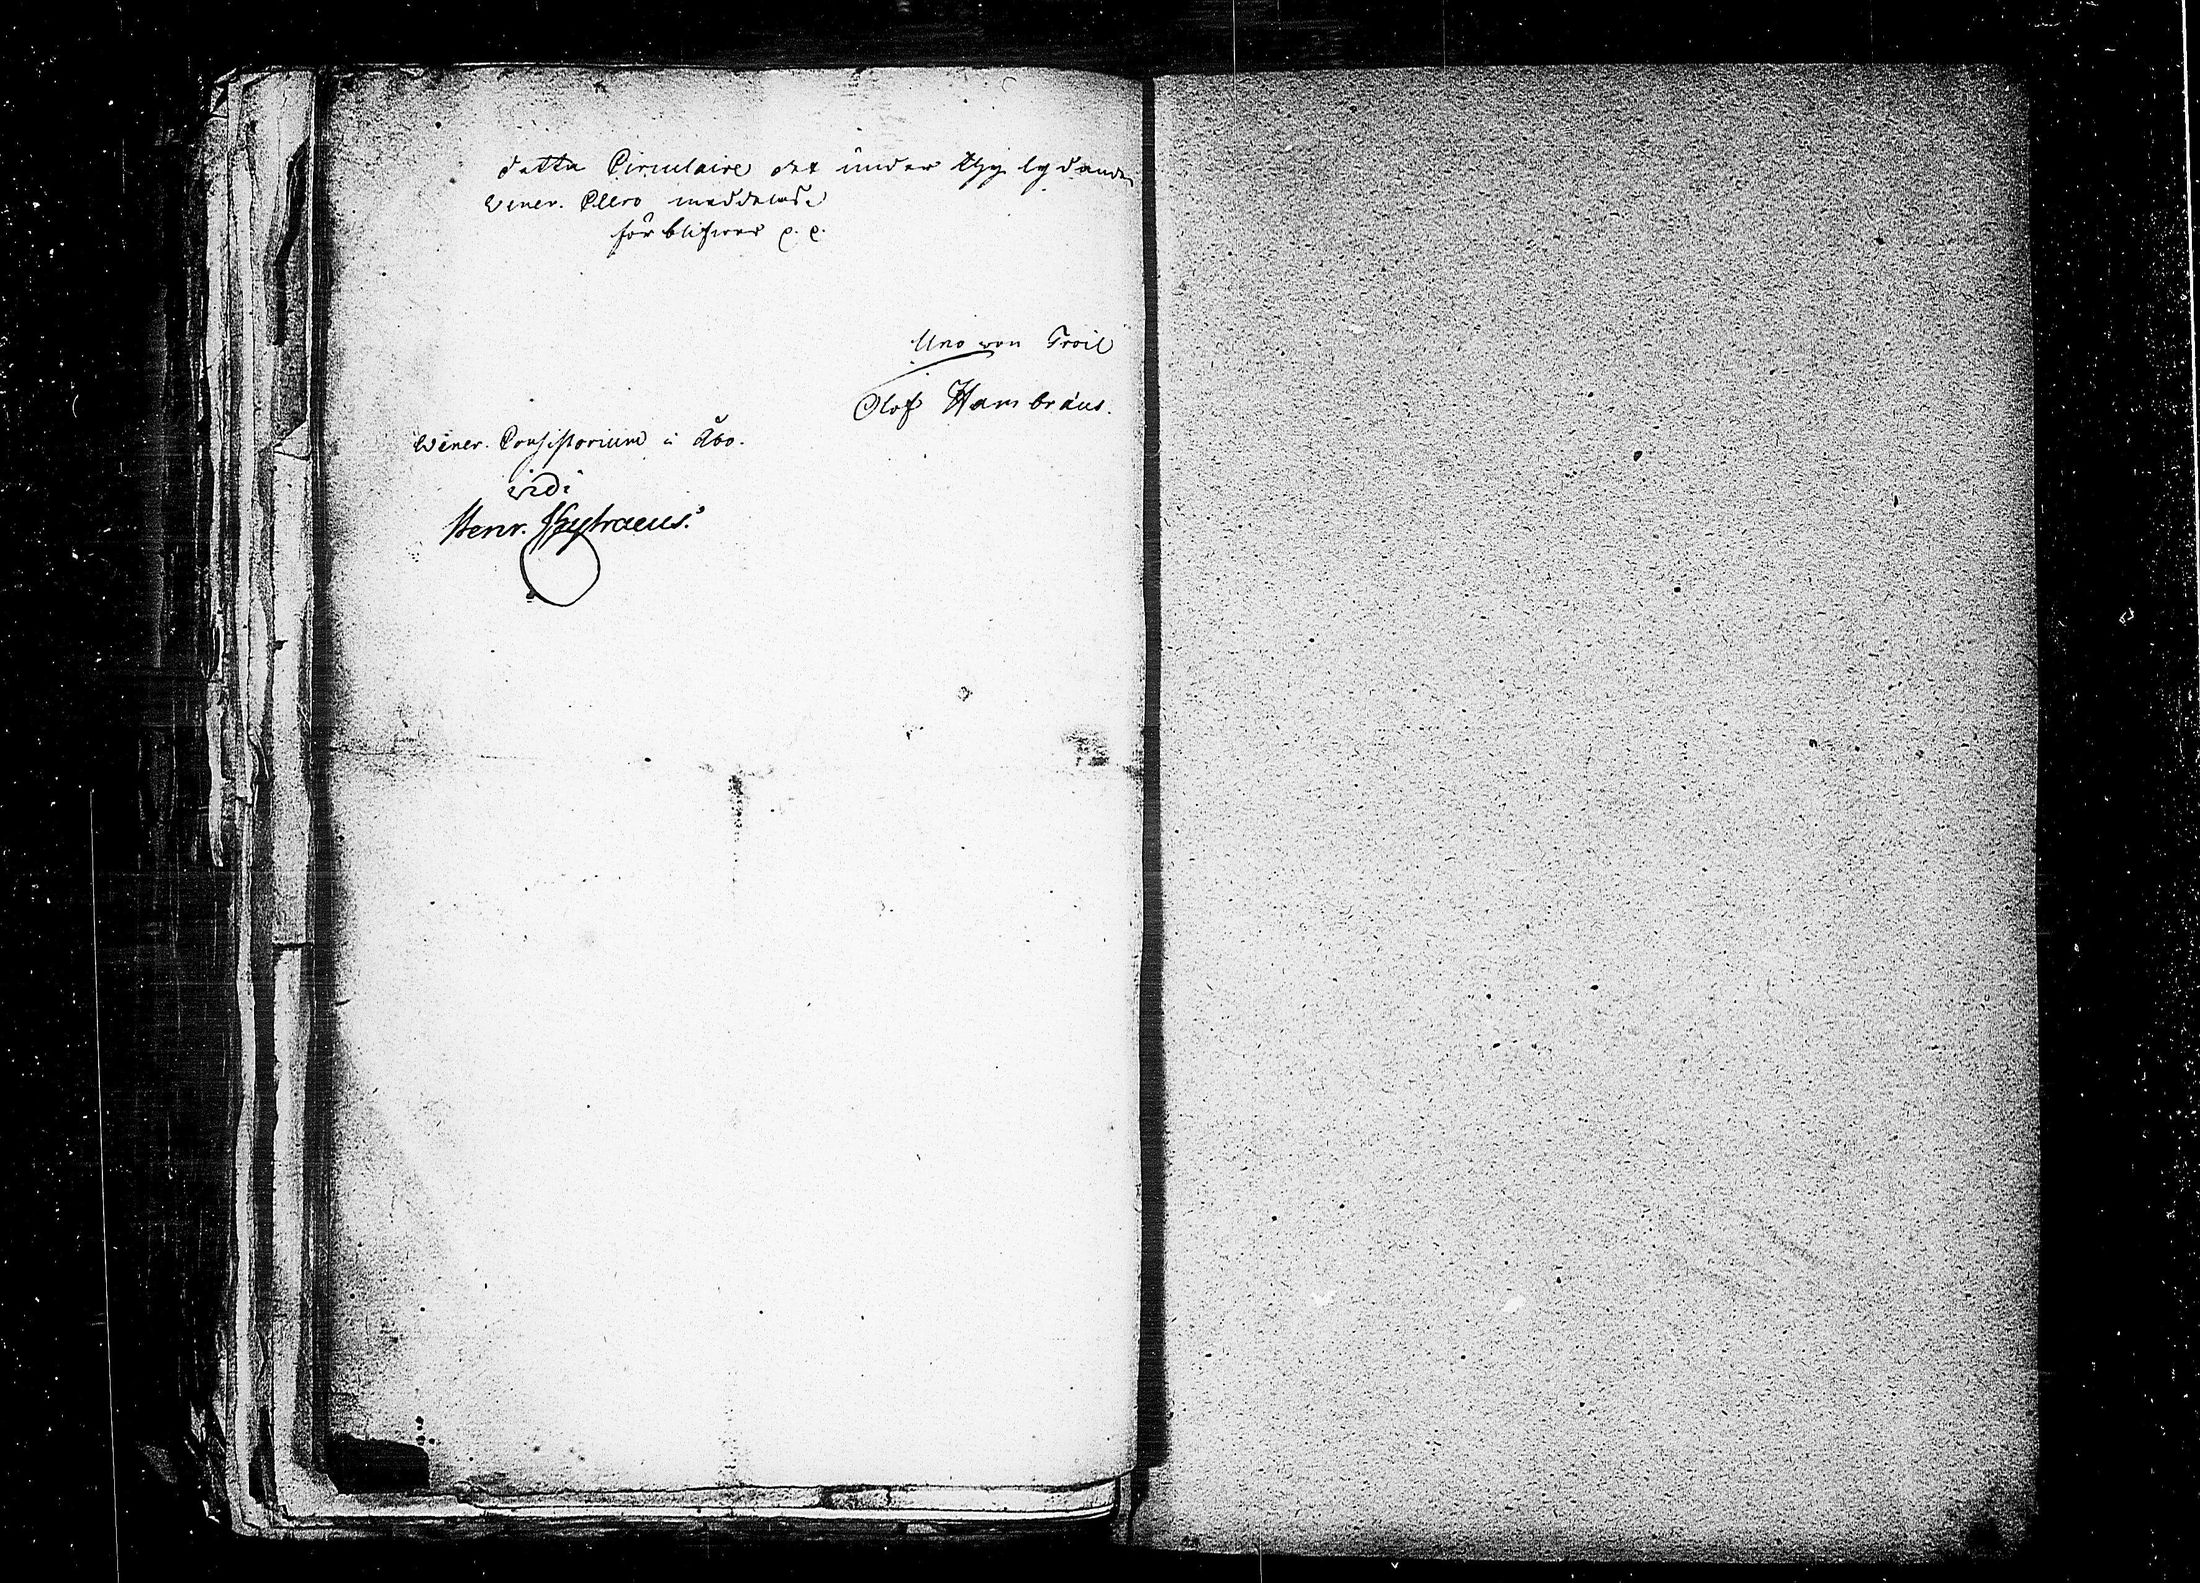 detta Circulaire det under Thy lydande
Vener. Clero meddelas.
förblifwer &. &.
Uno von Troil
Olof Hambräus.
Vener. Consistorium i Åbo.
vidi
Henr.